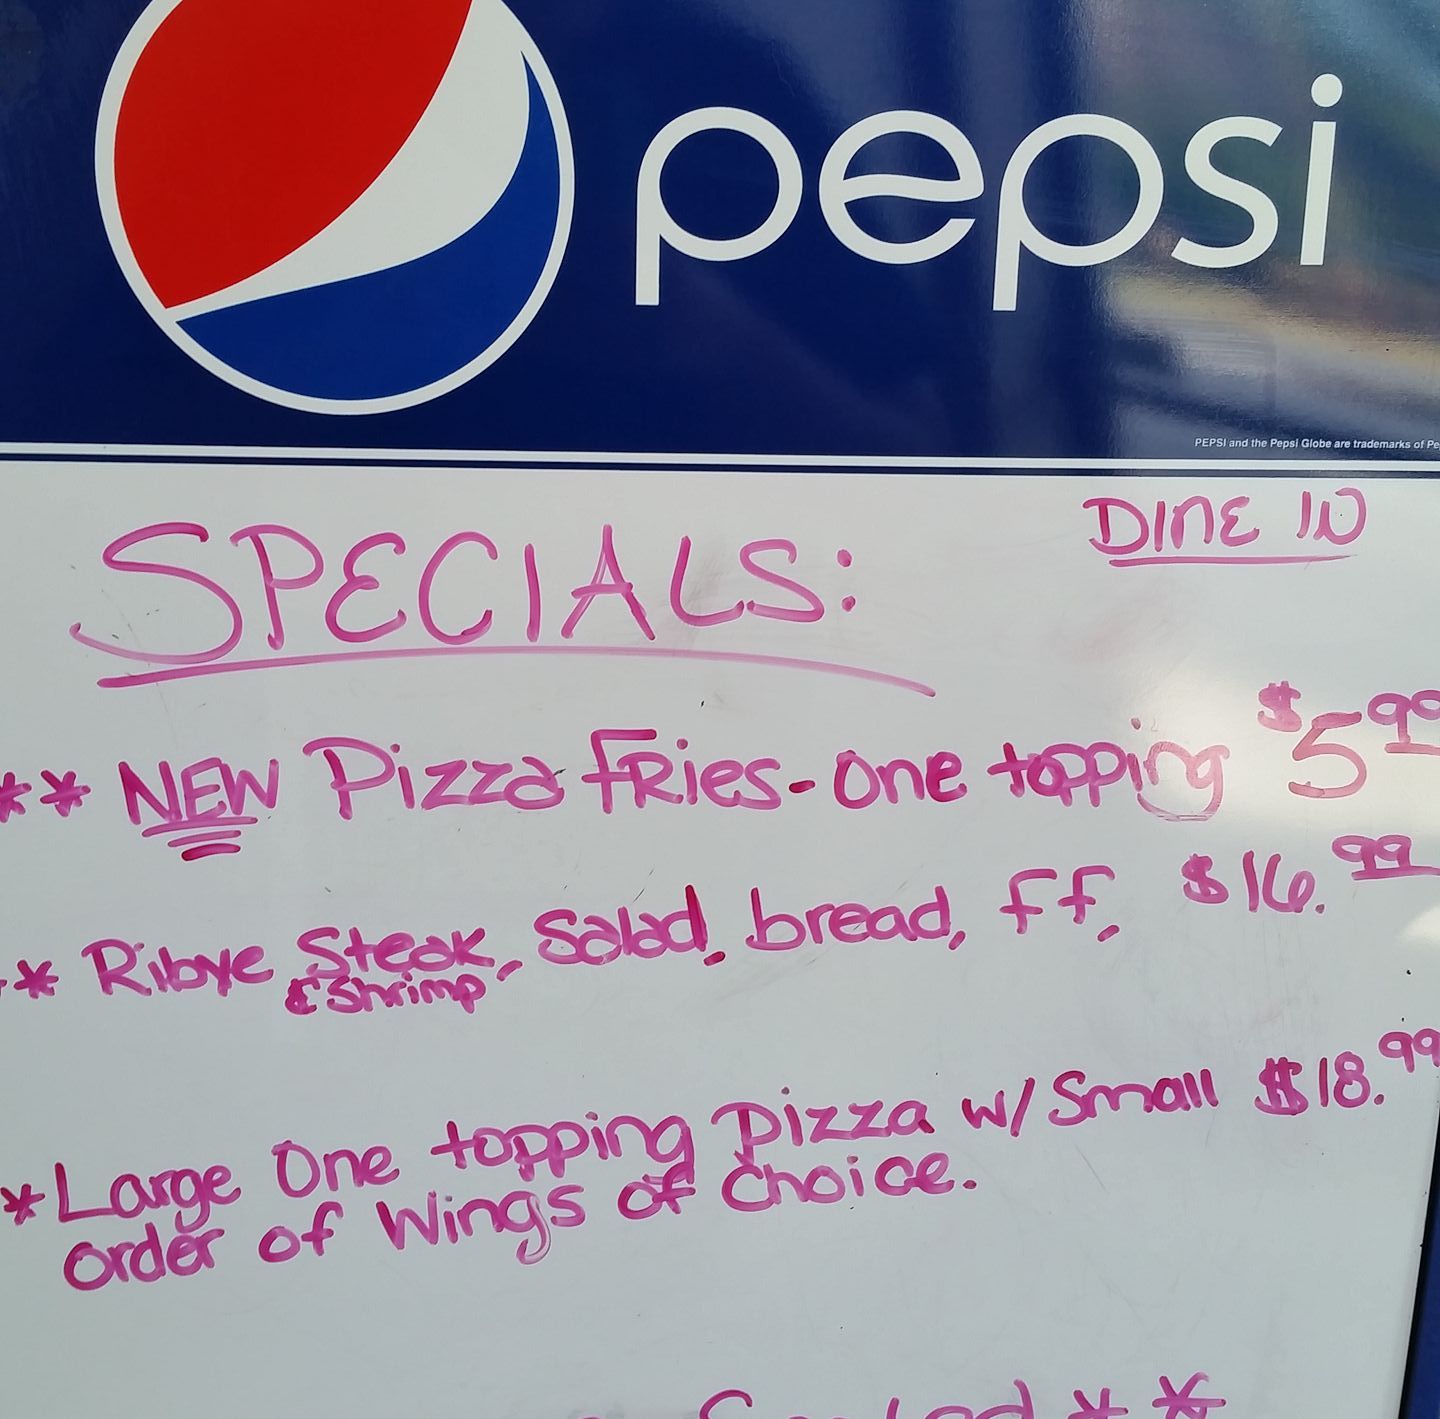 pepsi
PEPSI and the Pepsi Globe are trademarks of
SPECIALS: DINE IN
** NEW Pizza Fries - One topping $5.99
** Ribye Steak, Salad, bread, FF, $16.99
& Shrimp
* Large One topping Pizza w/ Small $18.99
order of Wings of Choice.
**